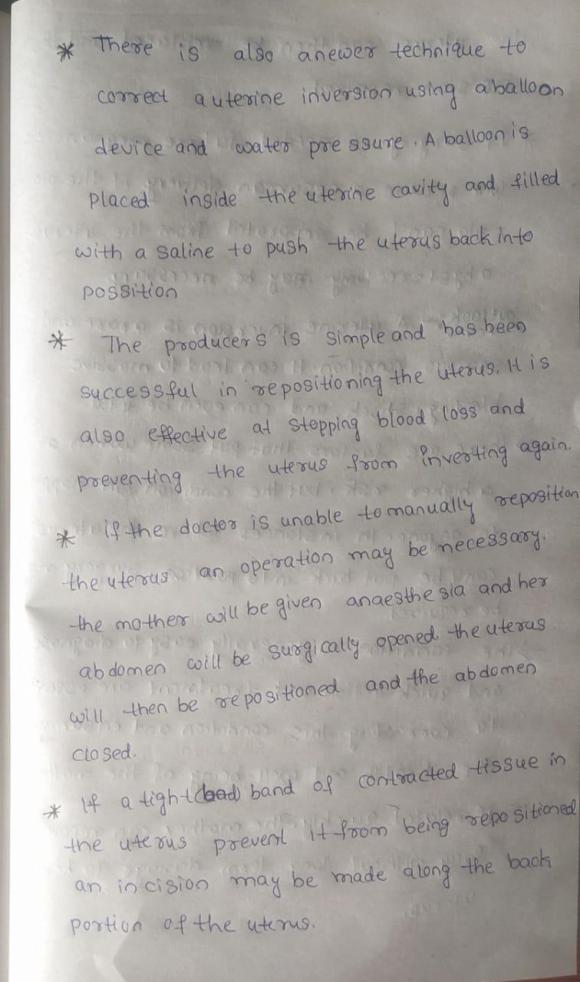 * There is also anewer technique to
correct a uterine inversion using a balloon
device and water pressure. A balloon is
placed inside the uterine cavity and filled
with a saline to push the uterus back into
possition
* The producers is simple and has been
successful in repositioning the uterus. It is
also effective at stopping blood loss and
preventing the uterus from inverting again.
* if the doctor is unable to manually reposition
the uterus an operation may be necessary.
the mother will be given anaesthesia and her
abdomen will be surgically opened. the uterus
will then be repositioned and the abdomen
closed.
* If a tight band of contracted tissue in
the uterus prevent it from being repositioned
an incision may be made along the back
portion of the uterus.